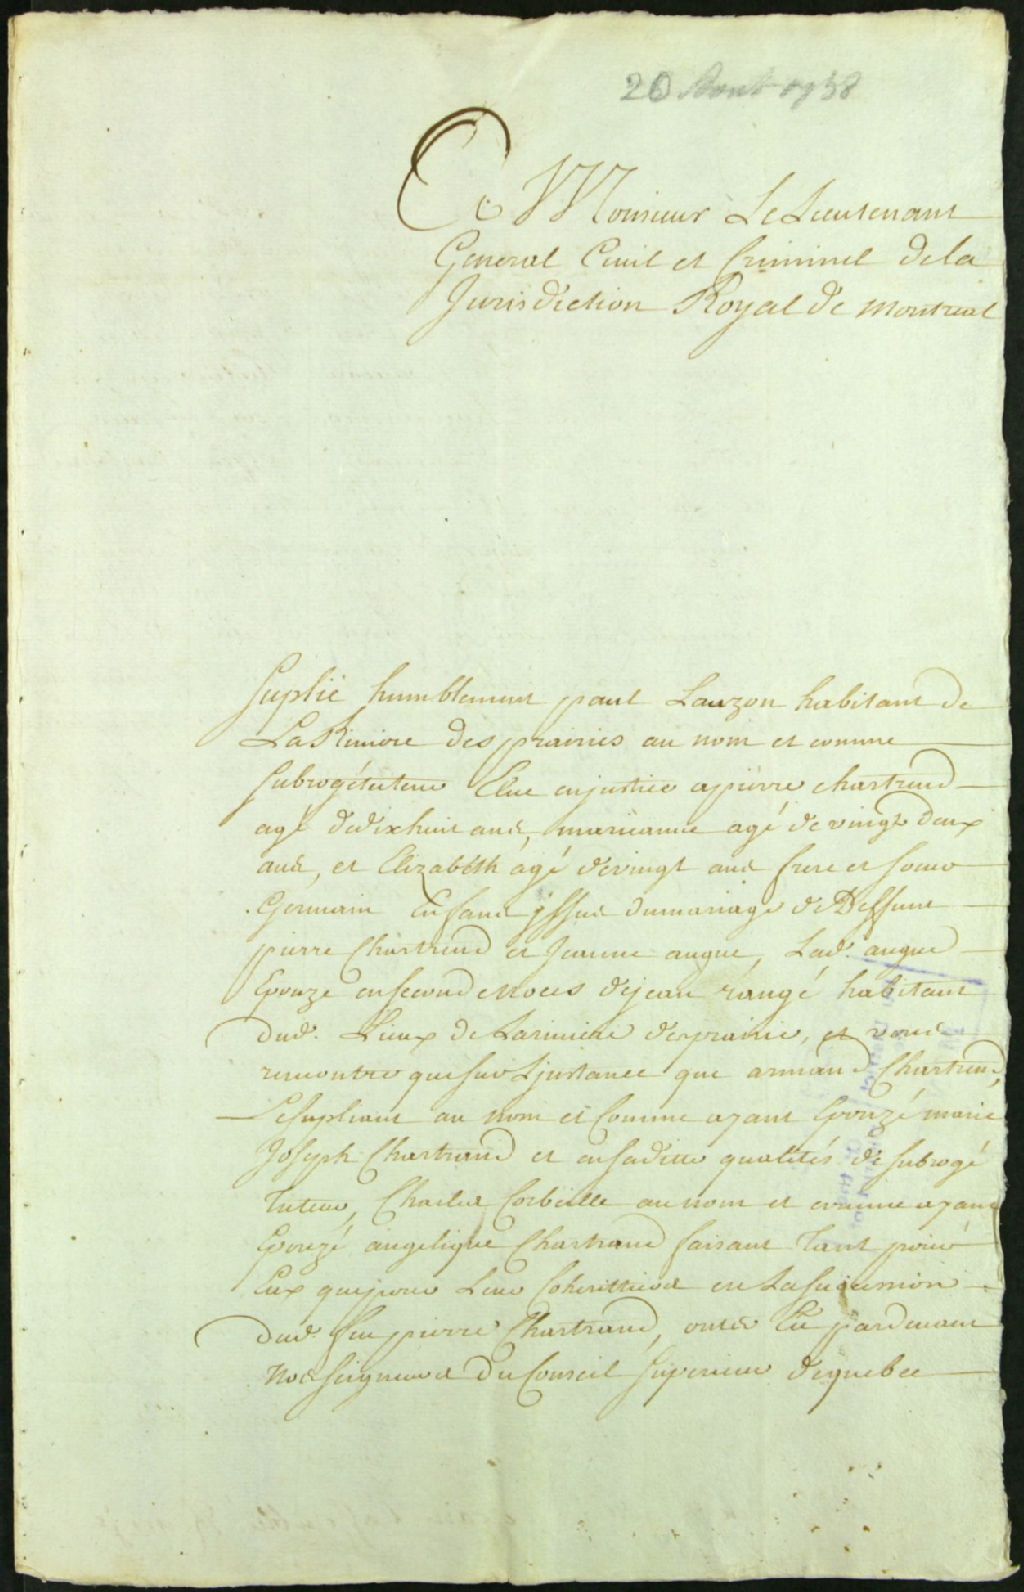 20 Aout 1738
A Monsieur Le Lieutenant
General Ciuil et Criminel dela
Jurisdiction Royal de montreal
Suplie humblement paul Lauzon habitant de
La Riuiere des prairies au nom et comme
Subrogé tuteur Elue en justice a pierre chartrand
agé de dix huit ans, marieanne agé de vingt deux
ans, et Elizabéth agé de vingt ans frere et soeur
Germain Enfans yssus du mariage de Deffunt
pierre Chartrand et Jeanne augué, Lad. augué
Epouzé en second noces de jean rangé habitant
dud. Lieux de Lariuiere des prairie, et vous
remontre que sur Linstance que armand Chartrand,
Le supliant au nom et Comme ayant Epouzé marie
Joseph Chartrand et en sa ditte qualités de subrogé
tuteur, Charles Corbeille au nom et comme ayant
Epouzé angelique Chartrand faisant tant pour
Eux que pour Leur Coherittiers en La succession
dud. feu pierre Chartrand, ont Eu pardeuant
Nosseigneurs du Conseil superieur de quebec